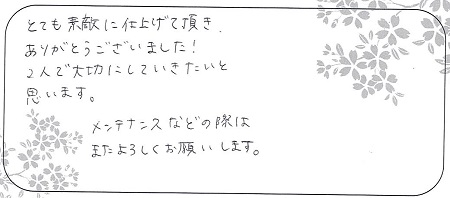 とても素敵に仕上げて頂き、
ありがとうございました！
2人で大切にしていきたいと
思います。
メンテナンスなどの際は
またよろしくお願いします。